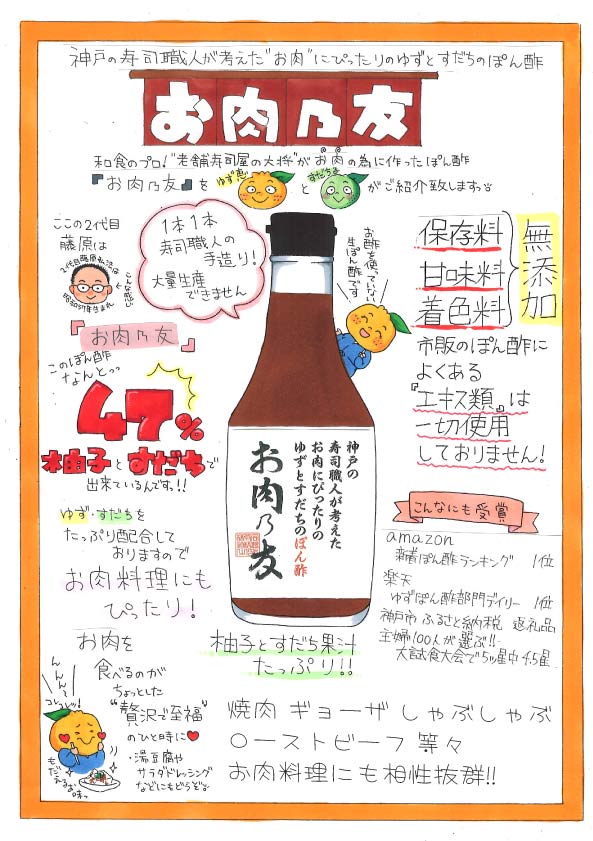 神戸の寿司職人が考えた"お肉"にぴったりのゆずとすだちのぽん酢
お肉乃友
和食のプロ!"老舗寿司屋の大将"がお肉の為に作ったぽん酢
『お肉乃友』をゆず恵とすだちまがご紹介致します
ここの2代目
藤原は
2代目藤原弘治は
昭和57年生まれ
こんな感じ
1本1本
寿司職人の
手造り!
大量生産
できません
お酢を使っていない
生ぽん酢です
保存料
甘味料
着色料
無添加
市販のぽん酢に
よくある
『エキス類』は
一切使用
しておりません!
お肉乃友
このぽん酢
なんとっっ
47%
柚子とすだちで
出来ているんです。!!
ゆず・すだちを
たっぷり配合して
おりますので
お肉料理にも
ぴったり!
神戸の
寿司職人が考えた
お肉にぴったりの
ゆずとすだちのぽん酢
お肉乃友
こんなにも受賞
amazon
新着ぽん酢ランキング 1位
楽天
ゆずぽん酢部門デイリー 1位
神戸市 ふるさと納税 返礼品
主婦100人が選ぶ!!
大試食大会で5ッ星中4.5星
柚子とすだち果汁
たっぷり!!
お肉を
食べるのが
ちょっとした
"贅沢で至福"
のひと時に
・湯豆腐や
サラダドレッシング
などにもどうぞ
んんん~
コレコレッ!
もだえるお味っ
焼肉 ギョーザ しゃぶしゃぶ
ローストビーフ 等々
お肉料理にも相性抜群!!